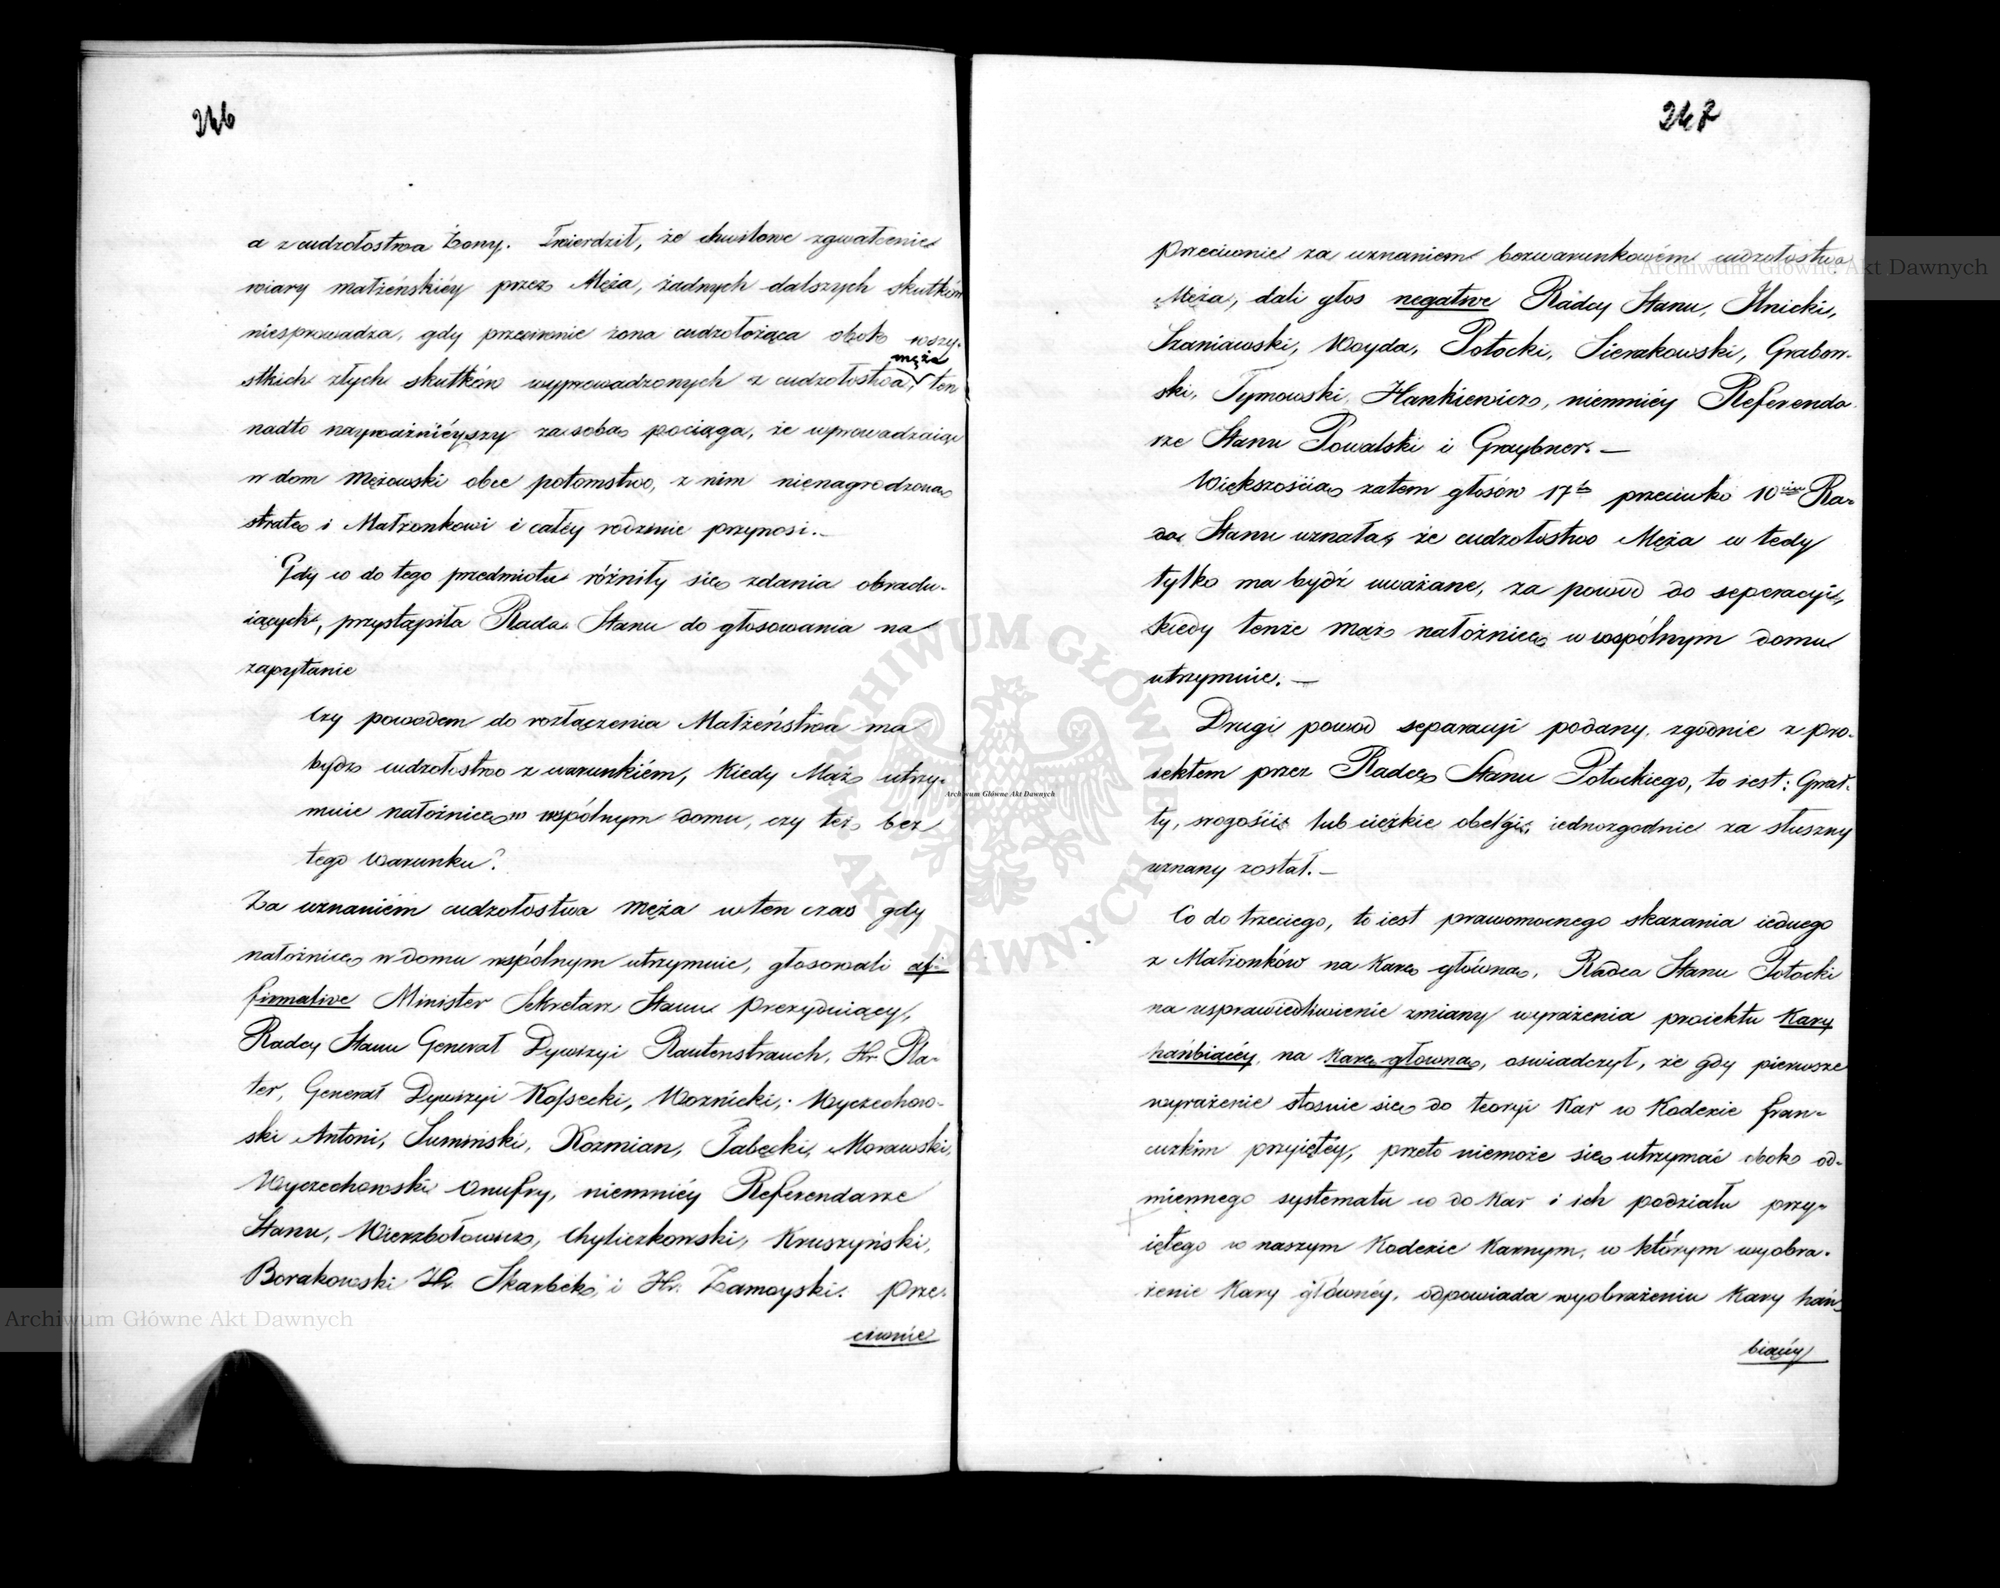 246
a z cudzołostwa Żony. Twierdził, że chwilowe zgwałcenie
wiary małżeńskiéy przez Męża, żadnych dalszych skutków
niesprowadza, gdy przeciwnie żona cudzołożąca obok wszy-
męża
stkich złych skutków wyprowadzonych z cudzołostwa, ten
nadto nayważniéyszy za sobą pociąga, że wprowadzaiąc
w dom Mężowski obce potomstwo, z nim nienagrodzoną
stratę i Małżonkowi i całéy rodzinie przynosi.—
Gdy co do tego przedmiotu różniły się zdania obradu-
iących, przystąpiła Rada Stanu do głosowania na
zapytanie
Czy powodem do rozłączenia Małżeństwa ma
bydź cudzołostwo z warunkiém, kiedy Mąż utrzy-
muie nałożnicę w wspólnym domu, czy też bez
tego warunku?
Za uznaniém cudzołostwa Męża w ten czas gdy
nałożnicę w domu wspólnym utrzymuie, głosowali af-
firmative Minister Sekretarz Stanu Prezyduiący,
Radcy Stanu Generał Dywizyi Rautenstrauch, Hr. Pla-
ter, Generał Dywizyi Kossecki, Woznicki, Wyczechow-
ski Antoni, Sumiński, Kozmian, Tabęcki, Morawski,
Wyczechowski Onufry, niemniéy Referendarze
Stanu, Wierzbołowicz, Chyliczkowski, Kruszyński,
Borakowski Hr. Skarbek, i Hr. Zamoyski. Prze-
ciwnie
247
Przeciwnie za uznaniem bezwarunkowém cudzołostwa
Męża, dali głos negatwe Radcy Stanu, Ilnicki,
Szaniawski, Woyda, Potocki, Sierakowski, Grabow-
ski, Tymowski, Hankiewicz, niemniéy Referenda-
rze Stanu Powalski i Graybner.—
Większością zatem głosów 17tu przeciwko 10ciu Ra-
da Stanu uznała, że cudzołostwo Męża w tedy
tylko ma bydź uważane, za powod do seperacyi,
kiedy tenże mąż nałożnicę w wspólnym domu
utrzymuie.—
Drugi powod separacyi podany, zgodnie z pro-
iektem przez Radcę Stanu Potockiego, to iest: Gwał-
ty, srogości, lub ciężkie obelgi, iednozgodnie za słuszny
uznany został.—
Co do trzeciego, to iest prawomocnego skazania iednego
z Małżonków na karę główną, Radca Stanu Potocki
na usprawiedliwienie zmiany wyrażenia proiektu Kary
hańbiącéy, na karę głowną, oswiadczył, że gdy pierwsze
wyrażenie stosuie się do teoryi kar w Kodexie fran-
cuzkim przyiętéy, przeto niemoże się utrzymać obok od-
miennego systematu co do kar i ich podziału przy-
iętego w naszym Kodexie Karnym, w którym wyobra-
żenie Kary głównéy, odpowiada wyobrażeniu Kary hań-
biącéy
Archiwum Główne Akt Dawnych
Archiwum Główne Akt Dawnych
Archiwum Główne Akt Dawnych
ARCHIWUM GŁÓWNE AKT DAWNYCH